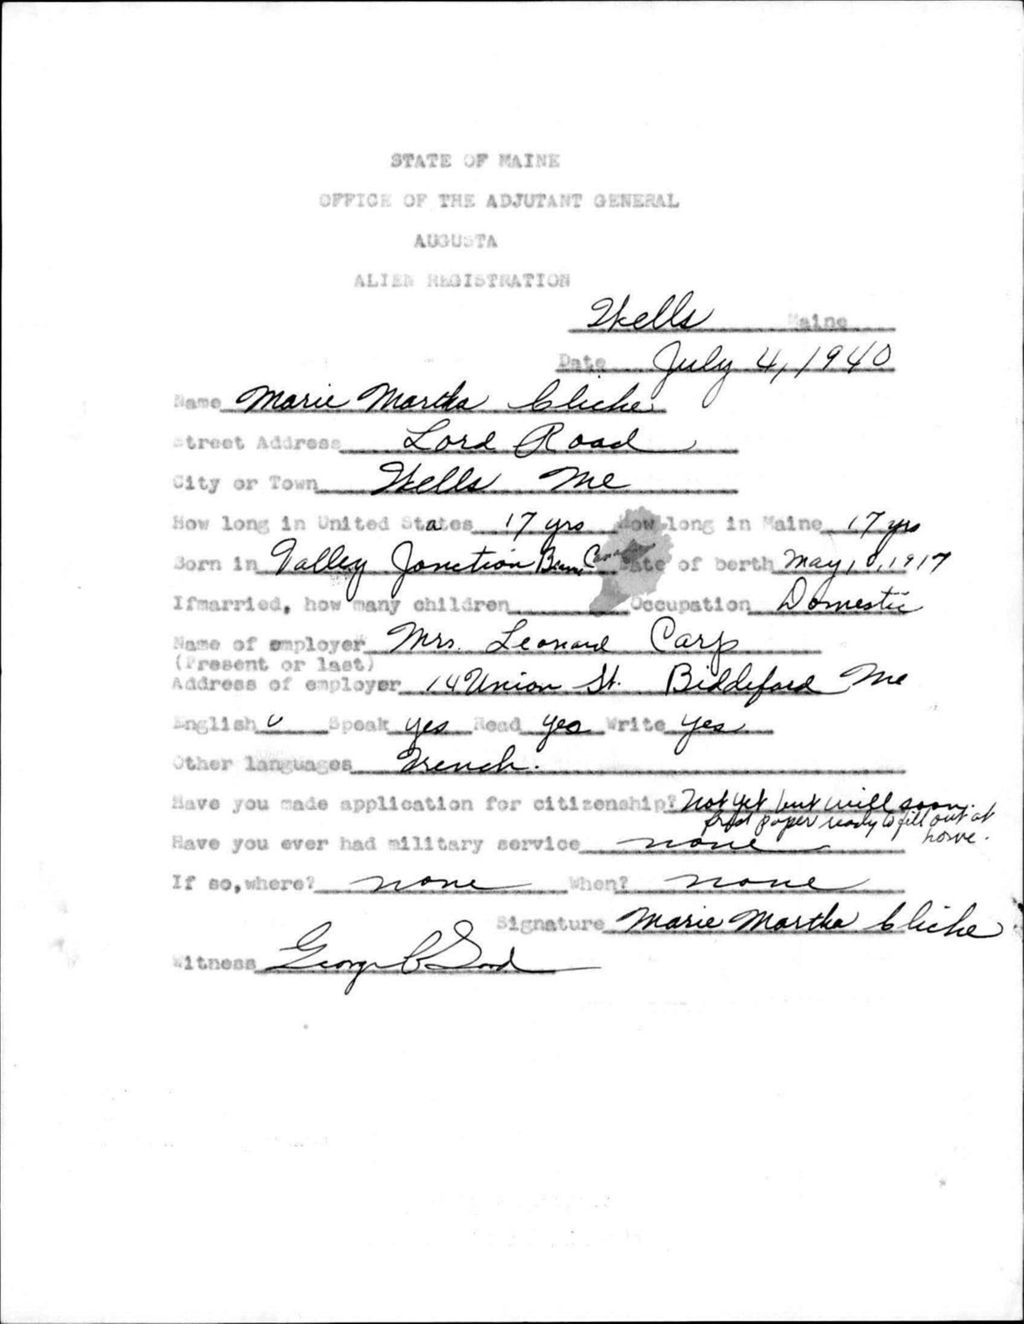 STATE OF MAINE
OFFICE OF THE ADJUTANT GENERAL
AUGUSTA
ALIEN REGISTRATION
Wells Maine
Date July 4, 1940
Name Marie Martha Cliche
Street Address Lord Road
City or Town Wells Me
How long in United States 17 yrs How long in Maine 17 yrs
Born in Valley Jonction Canada Date of berth May, 1917
Ifmarried, how many children Occupation Domestic
Name of employer Mrs. Leonard Carp
(Present or last)
Address of employer 14 Union St. Biddeford Me
English Speak yes Read yes Write yes
Other languages French.
Have you made application for citizenship? Not yet but will soon.
first paper ready to fill out at
home.
Have you ever had military service none
If so, where? none When? none
Signature Marie Martha Cliche
Witness George C